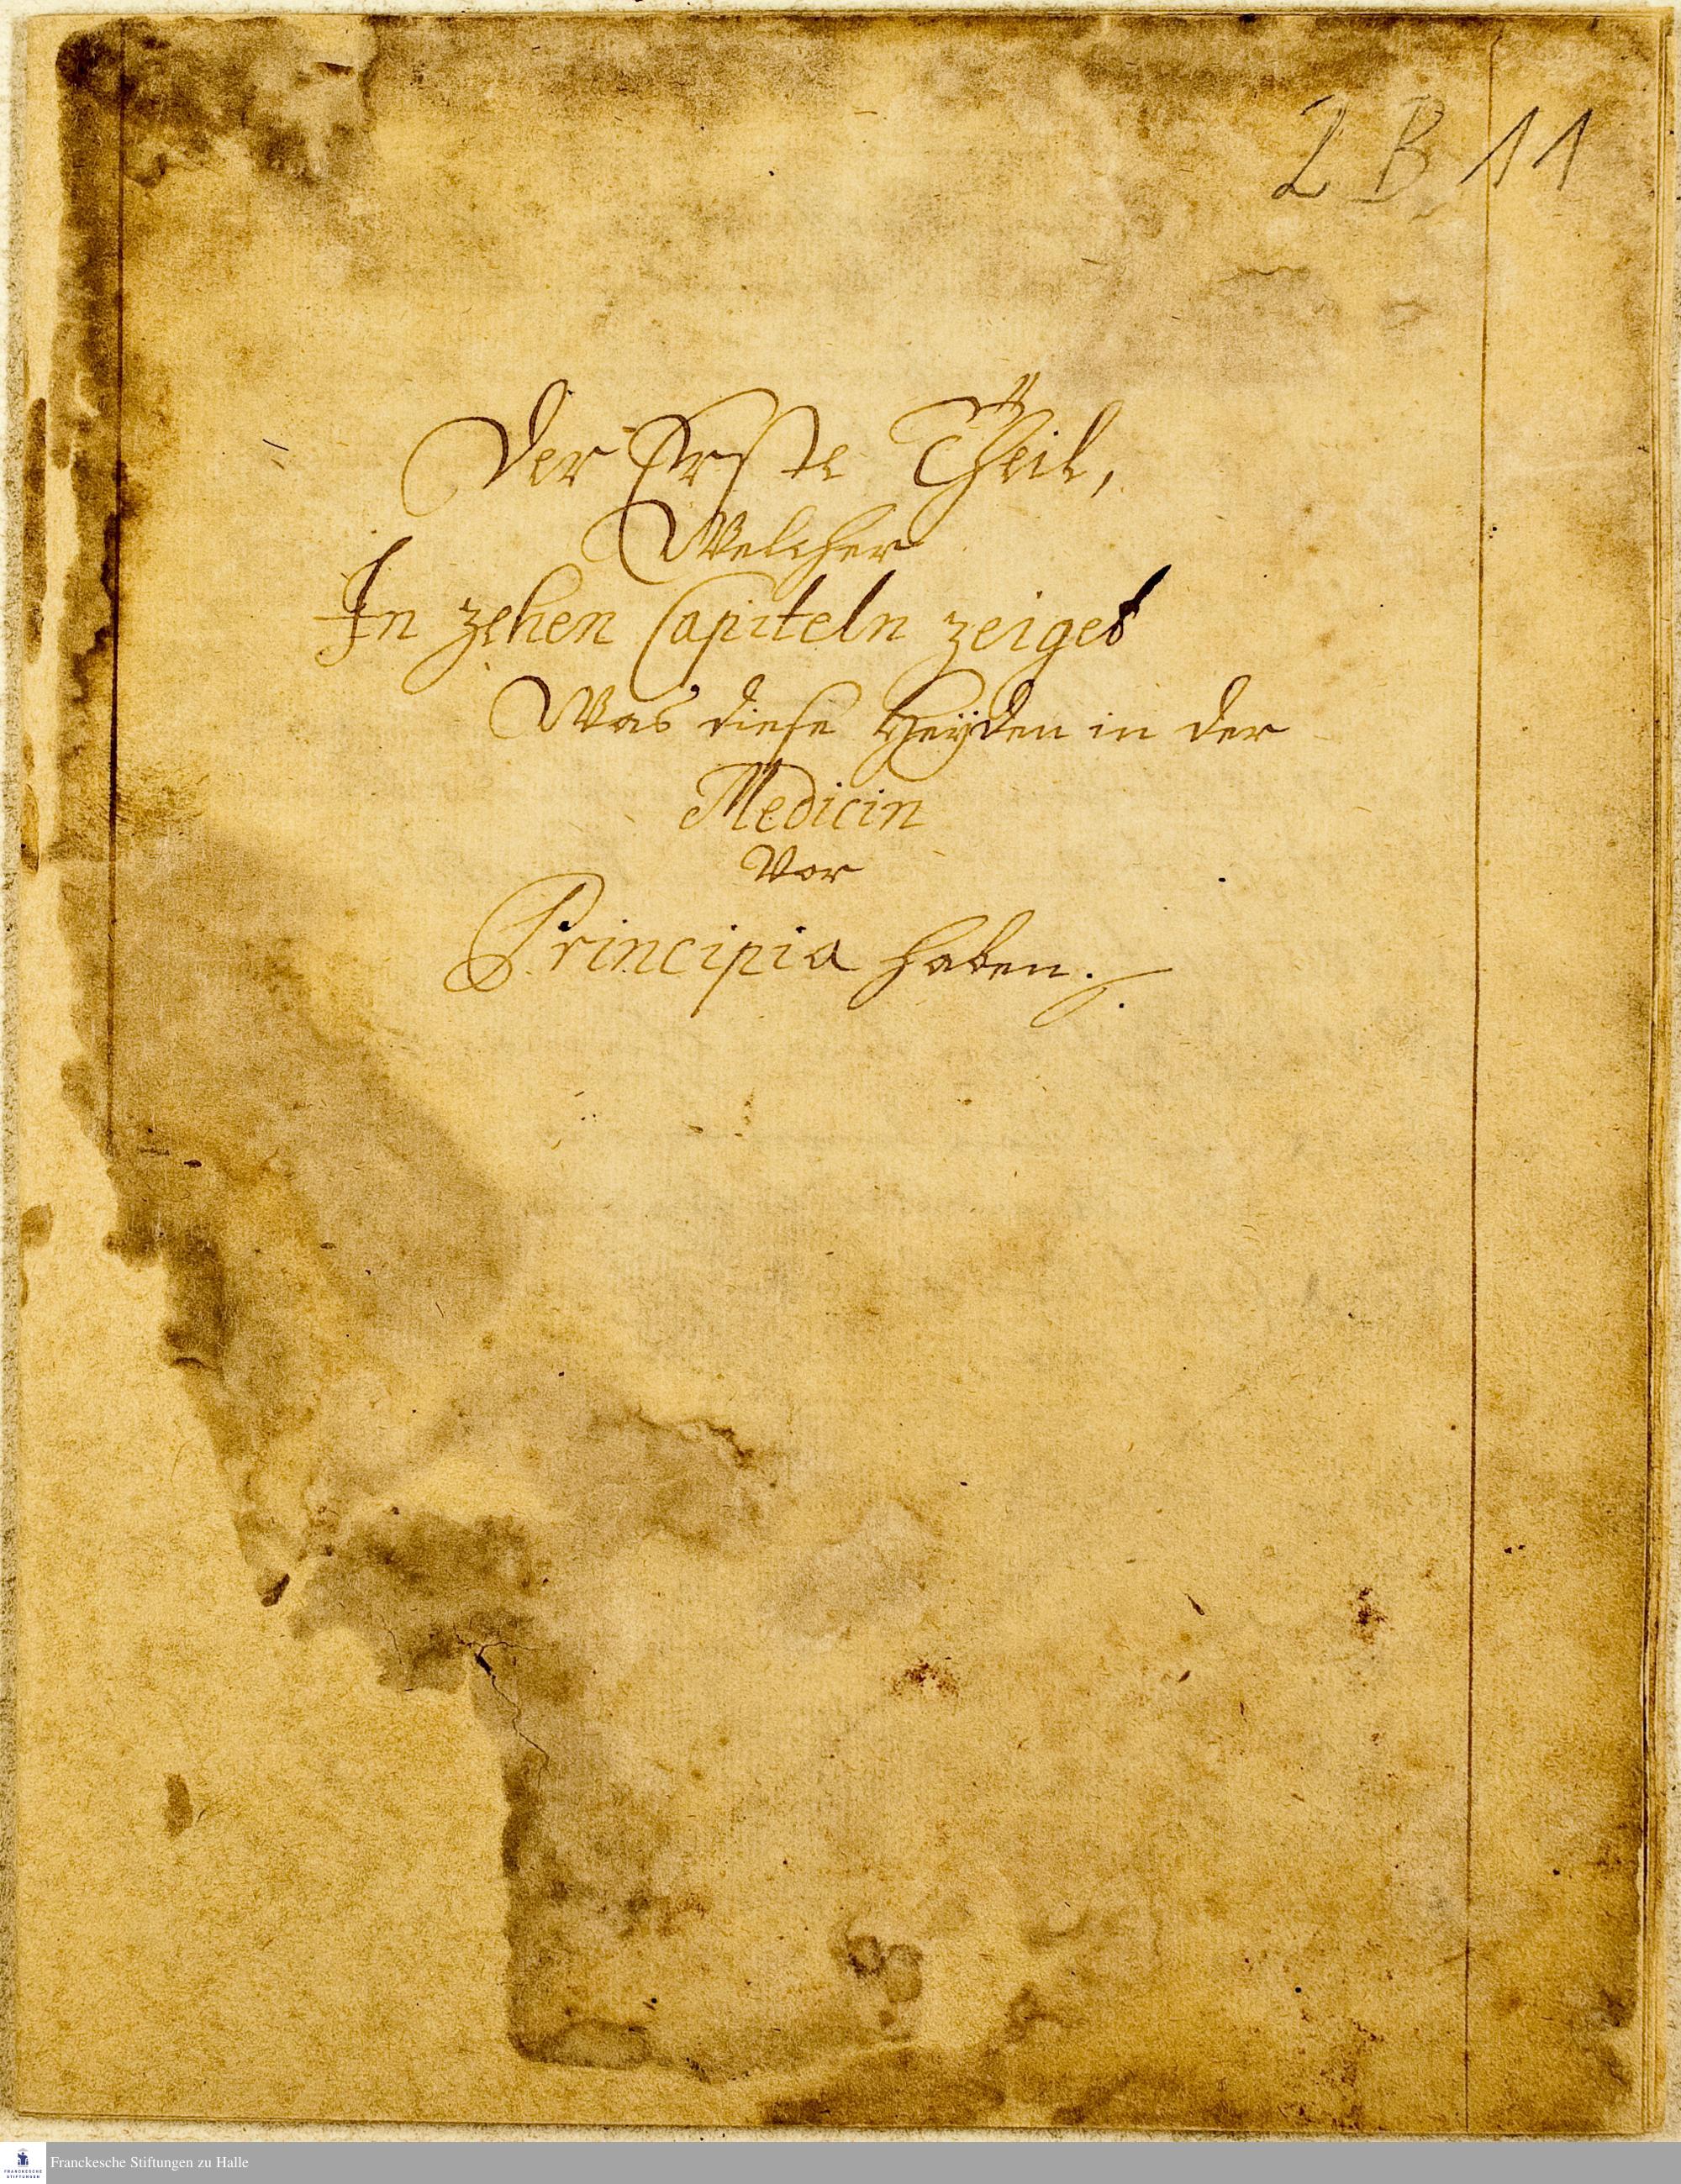 2 B 11
Der Erste Theil,
Welcher
In zehen Capiteln zeiget
Was diese Heÿden in der
Medicin
Vor
Principia haben.
FRANCKESCHE
STIFTUNGEN
Franckesche Stiftungen zu Halle